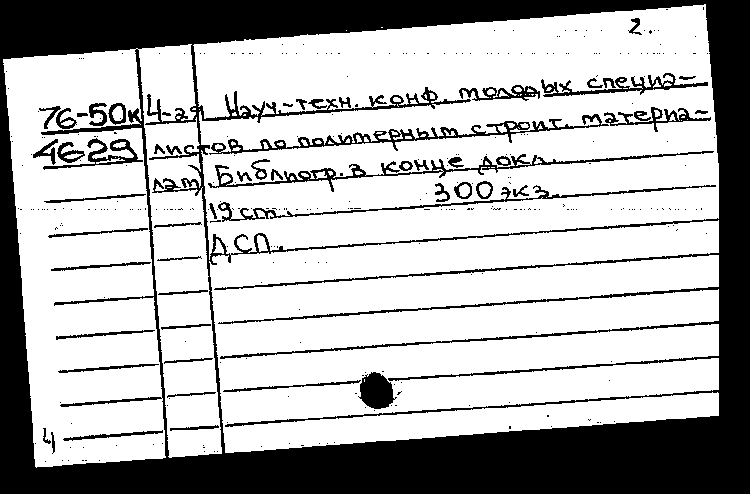 2.
76-50к 4-ая Науч.-техн. конф. молодых специа-
46-29 листов по полимерным строит. материа-
лам). Библиогр. в конце докл.
19 ст. 300 экз.
ДСП.
4